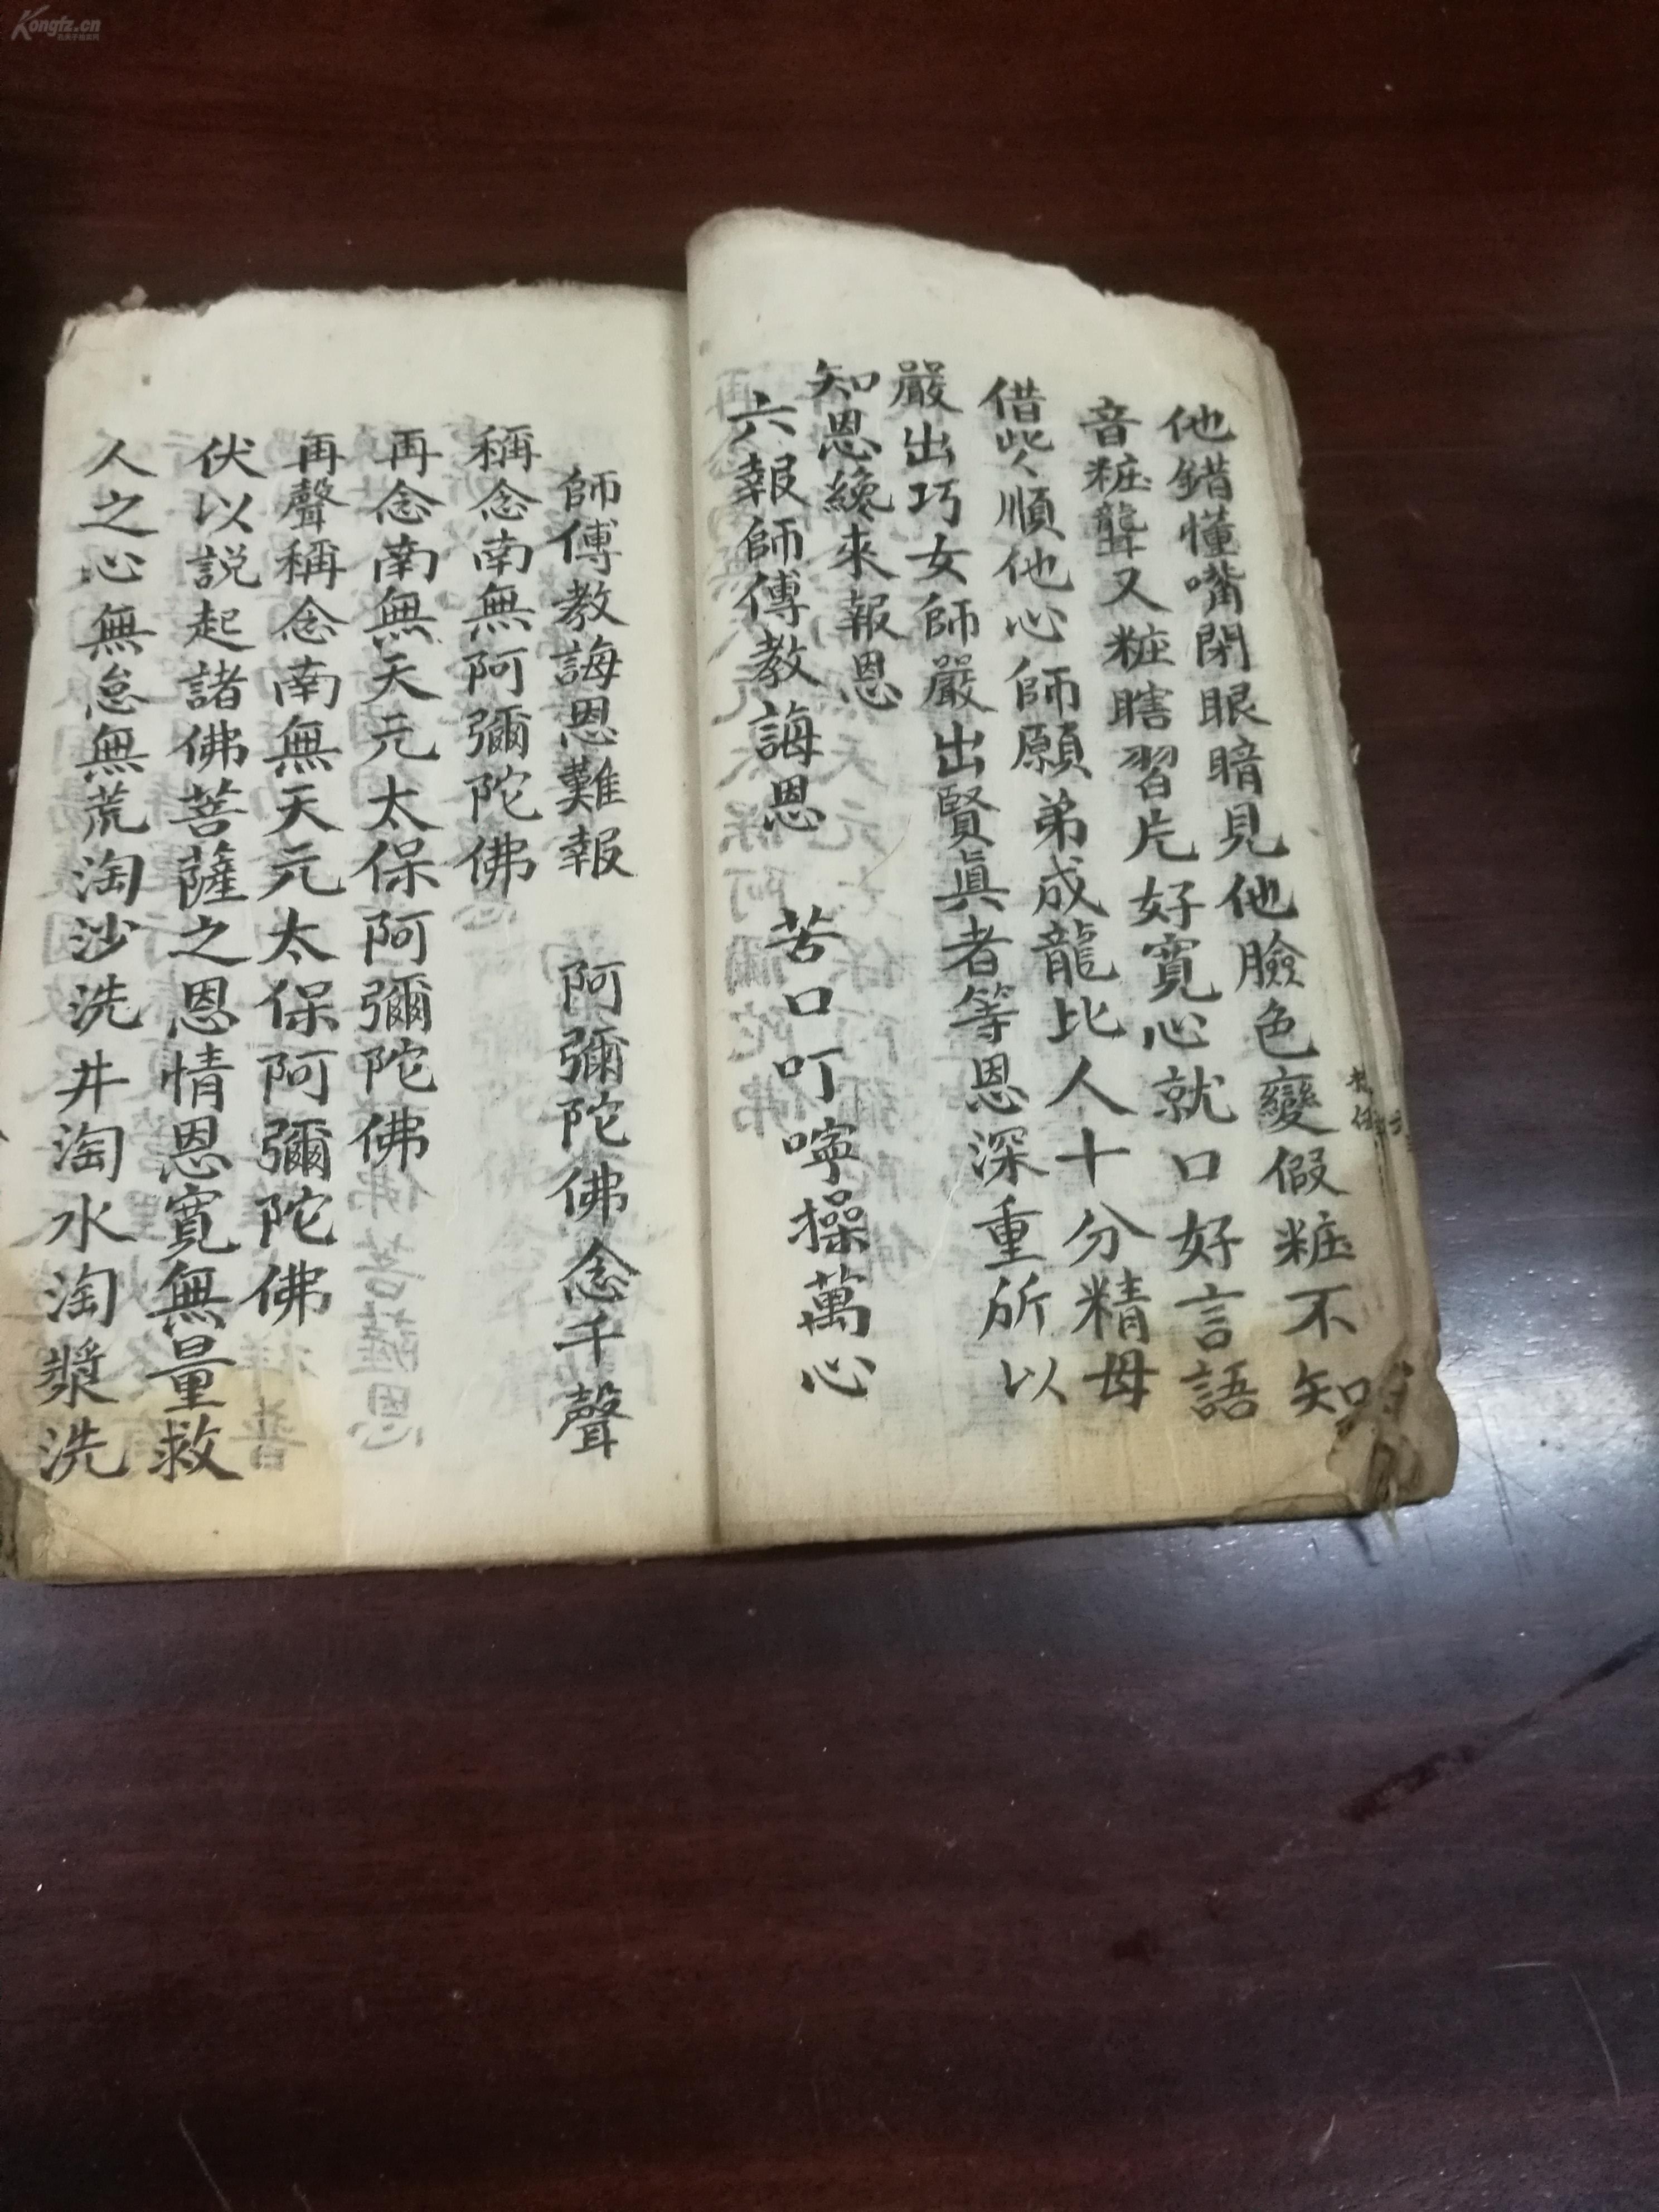 他錯懂嘴閉眼暗見他臉色變假粧不知
音粧聾又粧瞎習片好寬心就口好言語
借此順他心師願弟成龍比人十分精母
嚴出巧女師嚴出賢真者等恩深重所以
知恩纔來報恩
六報師傅教誨恩 苦口叮嚀操萬心
師傅教誨恩難報 阿彌陀佛念千聲
稱念南無阿彌陀佛
再念南無天元太保阿彌陀佛
再聲稱念南無天元太保阿彌陀佛
伏以説起諸佛菩薩之恩情恩寬無量救
人之心無怠無荒淘沙洗井淘水淘漿洗
Kongfz.cn